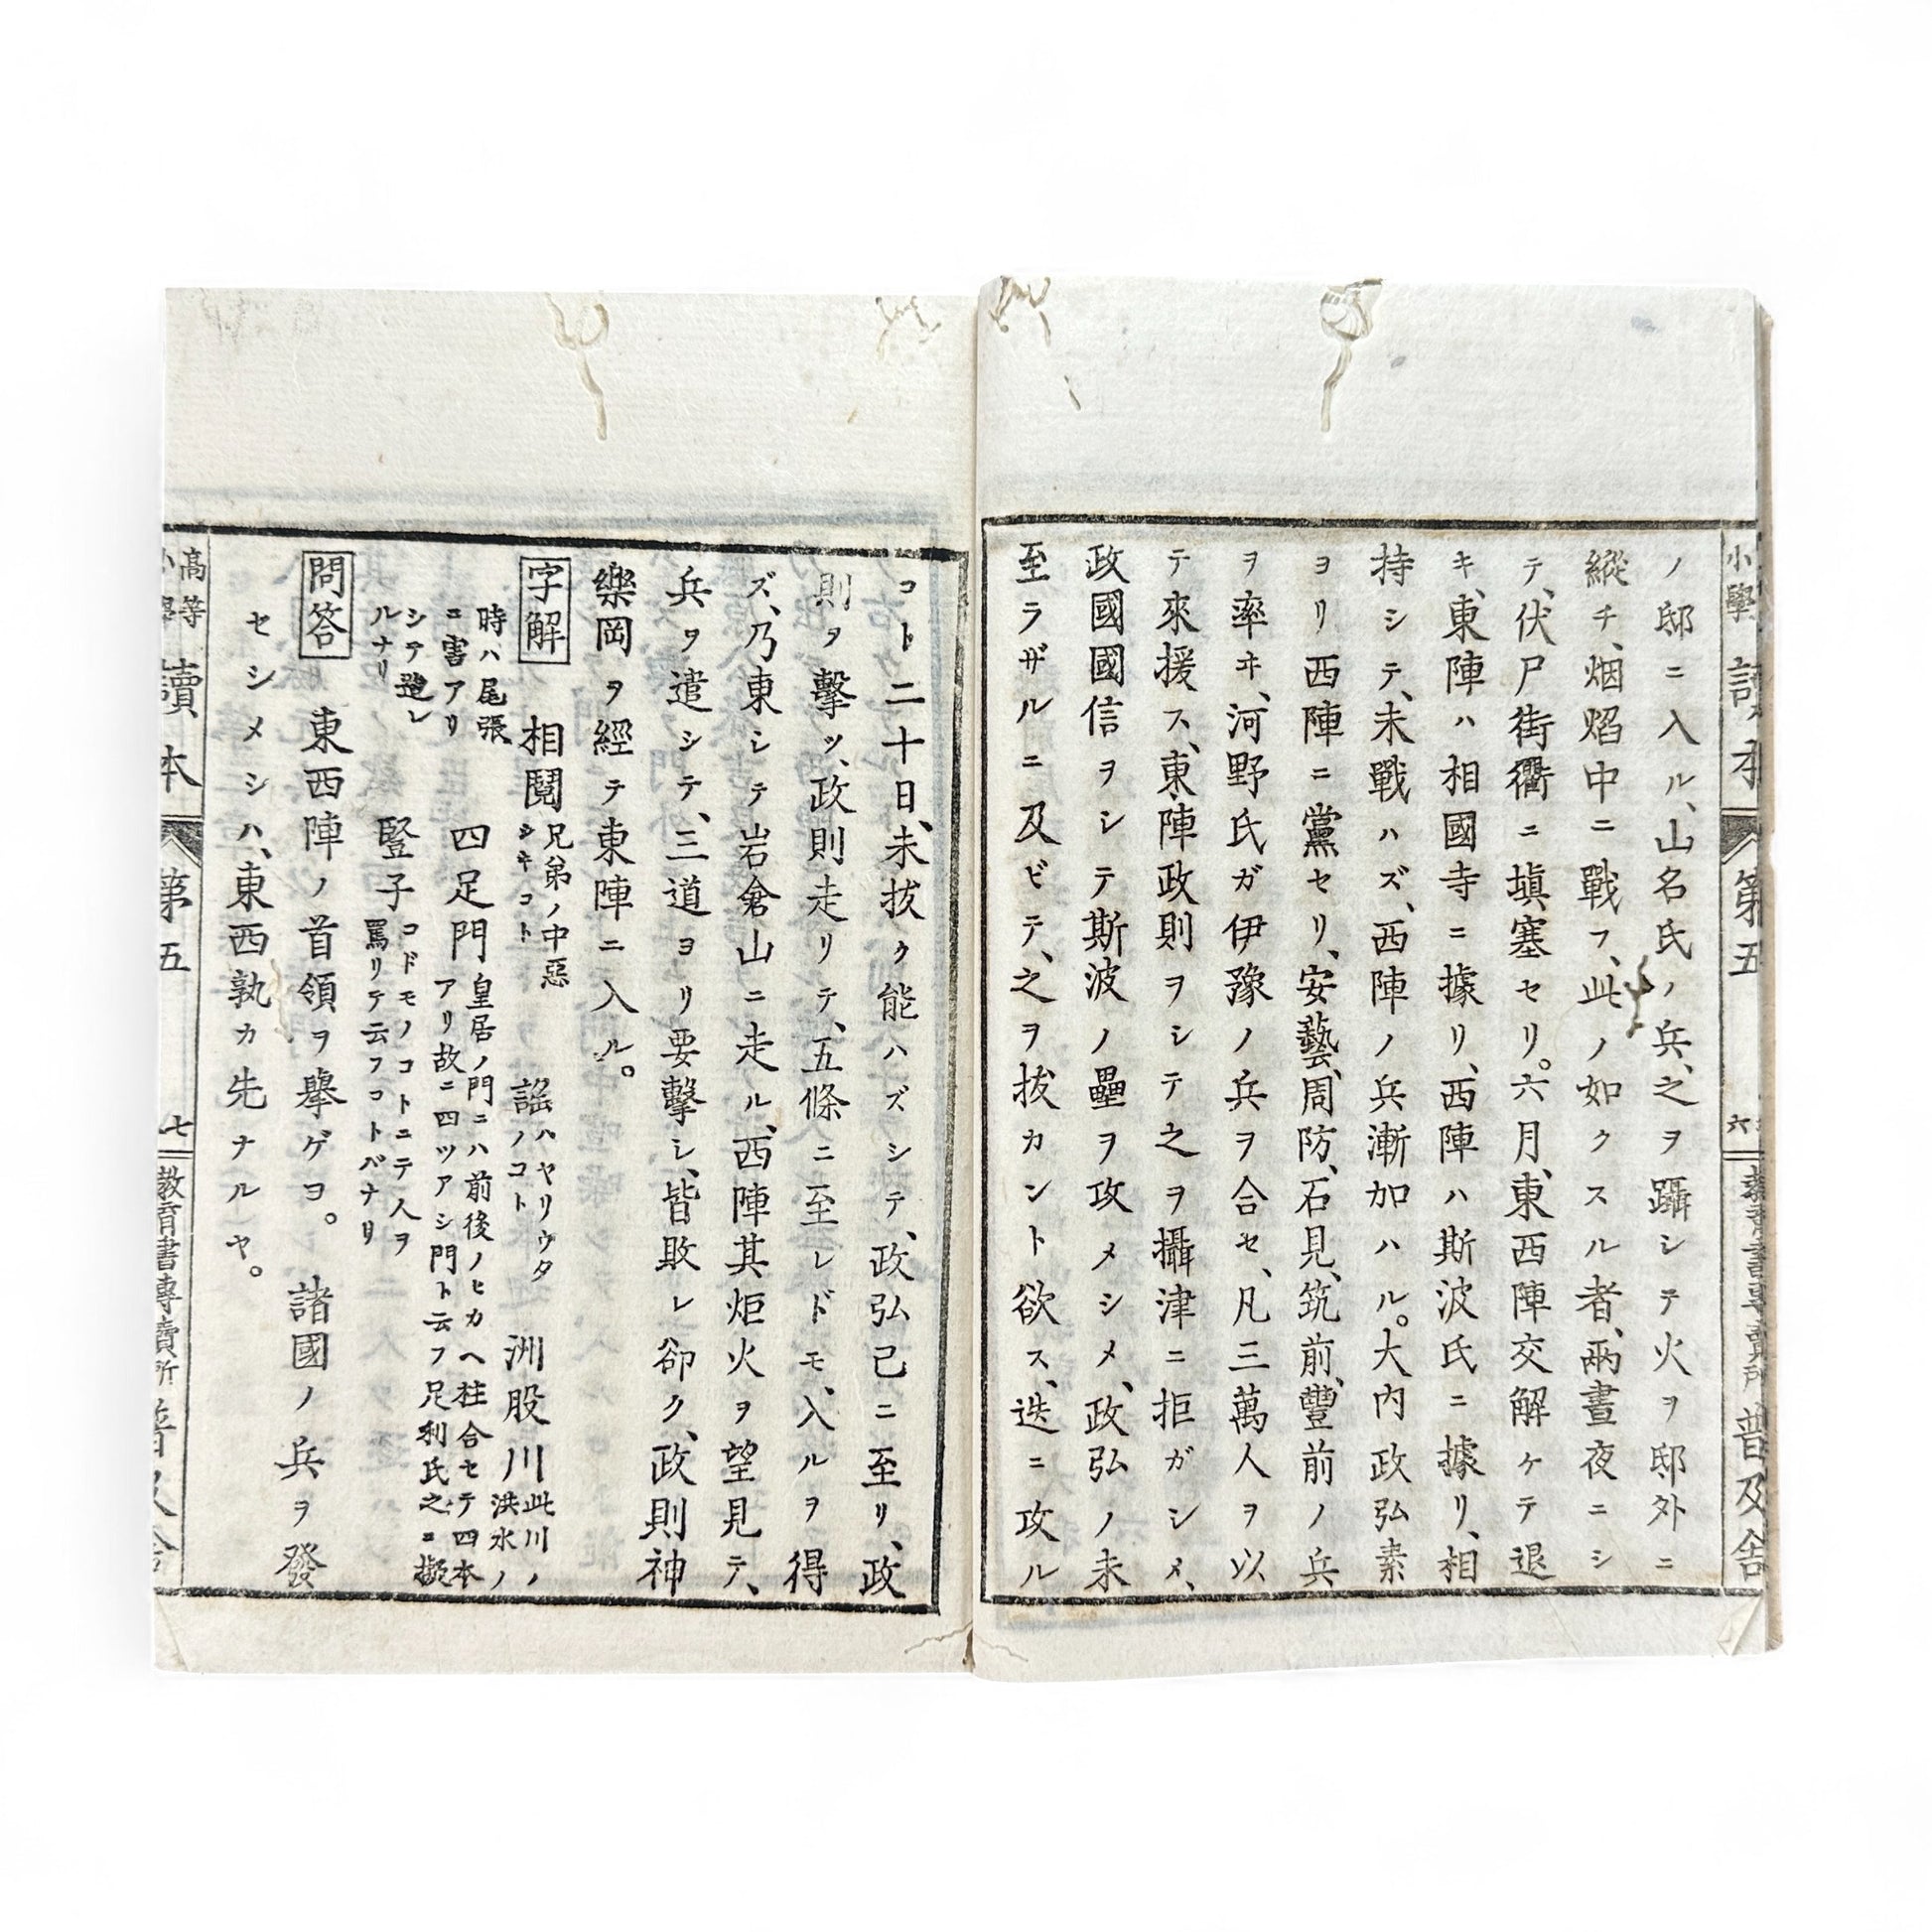 小學 讀本 第五 六 教育書專賣所 普及舍
ノ邸ニ入ル、山名氏ノ兵、之ヲ躡シテ火ヲ邸外ニ
縱チ、烟焰中ニ戰フ、此ノ如クスル者、兩晝夜ニシ
テ、伏尸街衢ニ塡塞セリ。六月、東西陣交解ケテ退
キ、東陣ハ相國寺ニ據リ、西陣ハ斯波氏ニ據リ、相
持シテ、未戰ハズ、西陣ノ兵漸加ハル。大内政弘素
ヨリ西陣ニ黨セリ、安藝、周防、石見、筑前、豐前ノ兵
ヲ率ヰ、河野氏ガ伊豫ノ兵ヲ合セ、凡三萬人ヲ以
テ來援ス、東陣政則ヲシテ之ヲ攝津ニ拒ガシメ、
政國國信ヲシテ斯波ノ壘ヲ攻メシメ、政弘ノ未
至ラザルニ及ビテ、之ヲ拔カント欲ス、迭ニ攻ル
コト二十日、未拔ク能ハズシテ、政弘已ニ至リ、政
則ヲ擊ツ、政則走リテ、五條ニ至レドモ、入ルヲ得
ズ、乃東シテ岩倉山ニ走ル、西陣其炬火ヲ望見テ、
兵ヲ遣シテ、三道ヨリ要擊シ、皆敗レ卻ク、政則神
樂岡ヲ經テ東陣ニ入ル。
字解 相鬩 兄弟ノ中惡シキコト 謡 ハヤリウタノコト 洲股川 此川ノ洪水ノ
時ハ尾張ニ害アリ 四足門 皇居ノ門ニハ前後ノヒカヘ柱合セテ四本アリ故ニ四ツアシ門ト云フ足利氏之ニ擬
シテ造レルナリ 豎子 コドモノコトニテ人ヲ罵リテ云フコトバナリ
問答 東西陣ノ首領ヲ擧ゲヨ。 諸國ノ兵ヲ發
セシメシハ、東西孰カ先ナルヤ。
高等小學 讀本 第五 七 教育書專賣所 普及舍